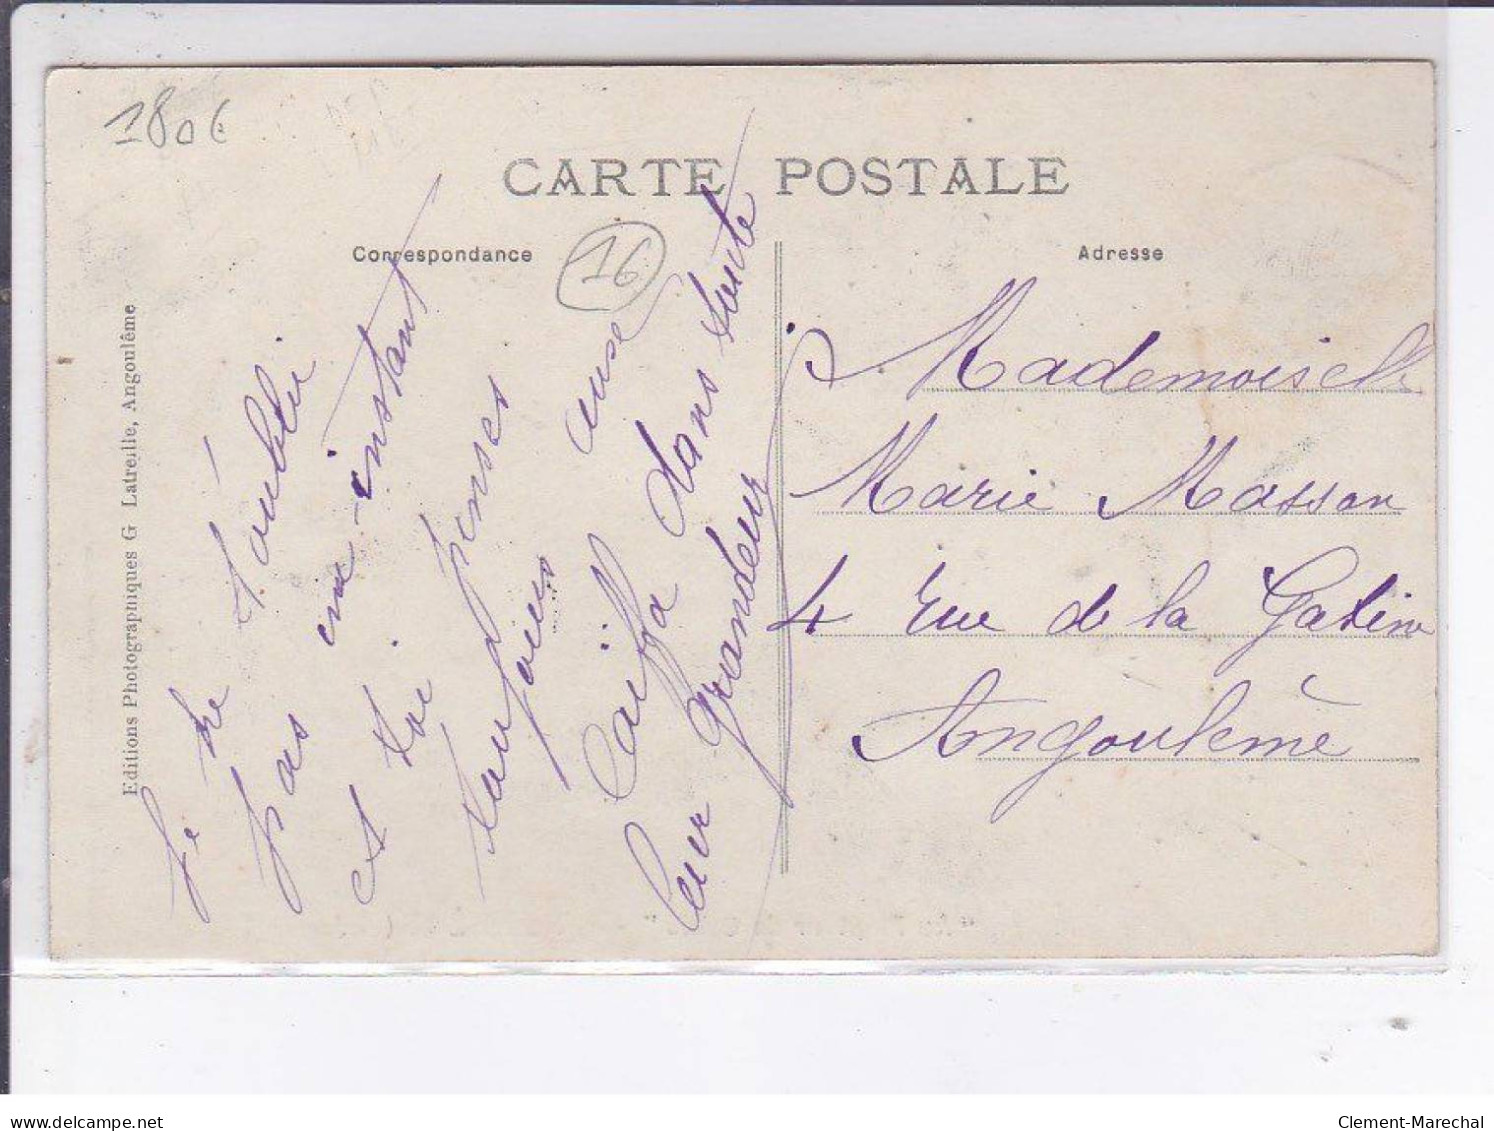 180€
CARTE POSTALE
Correspondance
16
Adresse
Editions Photographiques G Latreille, Angoulême
Je ne t'oublie
pas un instant
et toi penses
toujours aux
Caïffa dans toute
leur grandeur
Mademoiselle
Marie Masson
4 Rue de la Gatine
Angoulême
delcampe.net
Clement-Marechal